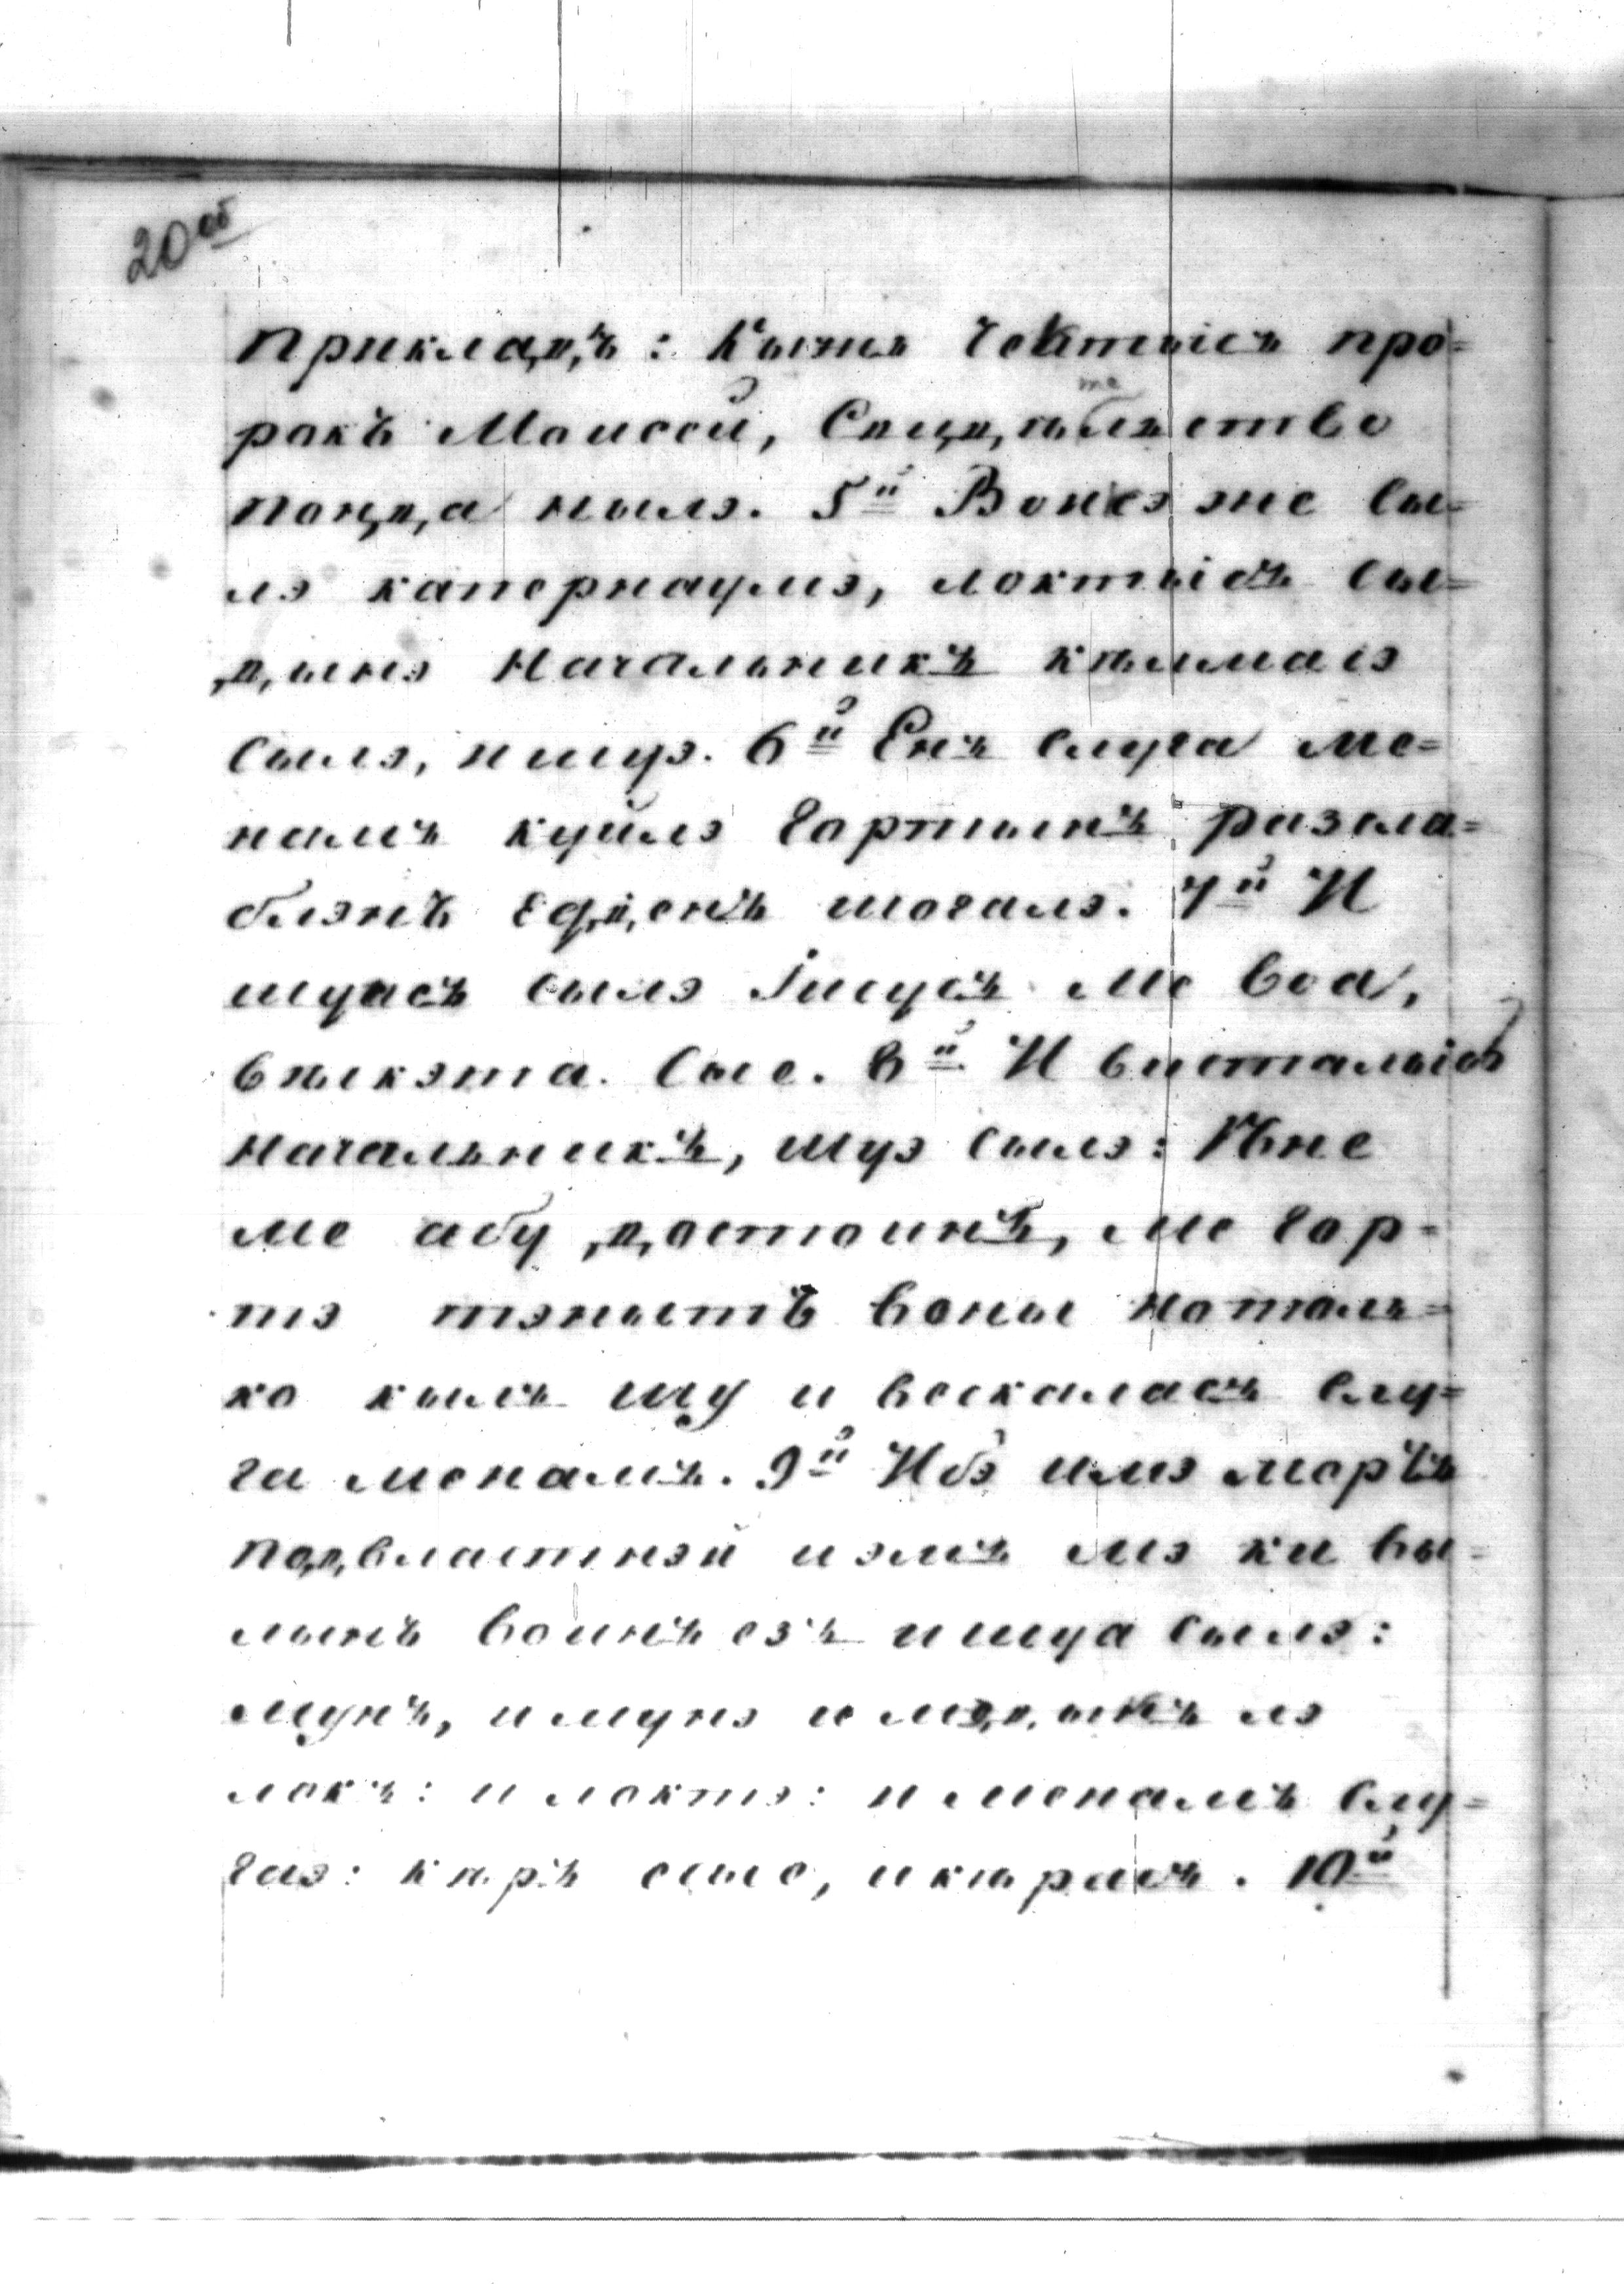 20об
прикладъ: Кызи чектысъ про=
рокъ Моисей, Свидѣтельство
понда нылэ. 5й Вонсэ же сы=
лэ капернаумэ, локтысъ сы=
дынэ Начальникъ кѣымаэ
сылэ, и шуэ. 6й Енъ слуга ме=
намъ куйлэ гортынъ разсла=
блэнъ едзенъ шогалэ. 7й И
шуасъ сылэ Іисусъ ме воа,
вѣыкэта. Сые. 8й И висталысь
Начальникъ, шуэ сылэ: Ене
ме абу достоинъ, ме гор=
тэ тэнытъ воны но толь=
ко кылъ шу и бескаласъ слу=
га менамъ. 9й Ибэ имэ мортъ
подвластнэй иэмъ мэ ки вы=
лынъ воинъезъ и шуа сылэ:
мунъ, и мунэ и мэдыкъ лэ
локъ: и локтэ: и менамъ слу=
гаэ: кѣръ сые, и кѣрасъ. 10й